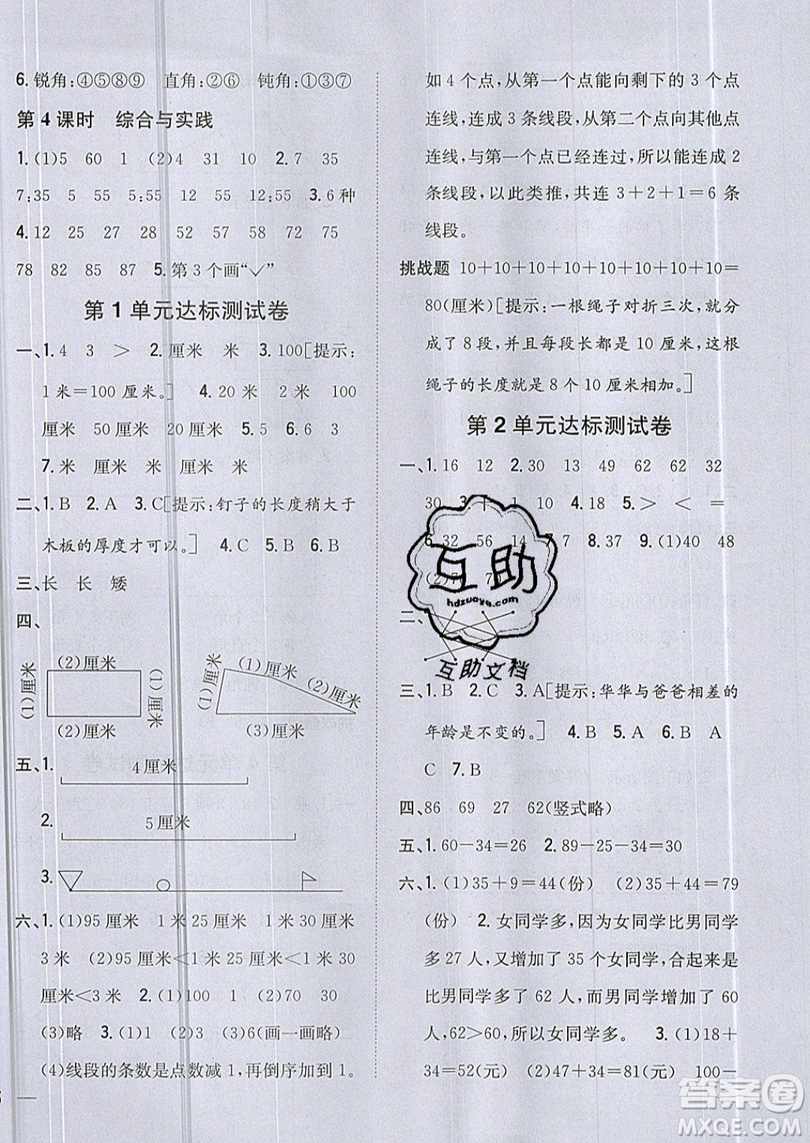 6.锐角:④⑤⑧⑨ 直角:②⑥ 钝角:①③⑦
第4课时 综合与实践
1.(1)5 60 1 (2)4 31 10 2.7 35
7:35 5 55 5:55 12 55 12:55 3.6种
4.12 25 27 28 52 57 58 72 75
78 82 87 5.第3个画“✓”
第1单元达标测试卷
一、1.4 3 > 2.厘米 米 3.100[提示:
1米=100厘米。] 4.20 2米 100
厘米 50厘米 20厘米 5.5 6.6 3
7.厘米 米 厘米 厘米
二、1.B 2.A 3.C[提示:钉子的长度稍大于
木板的厚度才可以。] 4.C 5.B 6.B
三、长 长 矮
四、
(2)厘米
(1)厘米
(1)厘米
(2)厘米
(1)厘米
(1)厘米
(2)厘米
(3)厘米
五、1.
4厘米
2.
5厘米
3.
六、1.(1)95厘米 1米25厘米 1米30厘米
3米 (2)95厘米<1米25厘米<1米30
厘米<3米 2.(1)50 20 (2)70 30
(3)略 3.(1)1 (2)3 (3)6(画一画略)
(4)线段的条数是点数减1,再倒序加到1。
如4个点,从第一个点能向剩下的3个点
连线,连成3条线段,从第二个点向其他点
连线,与第一个点已经连过,所以能连成2
条线段,以此类推,共连3+2+1=6条
线段。
挑战题 10+10+10+10+10+10+10+10=
80(厘米)[提示:一根绳子对折三次,就变
成了8段,并且每段长都是10厘米,这根
绳子的长度就是8个10厘米相加。]
第2单元达标测试卷
一、1.16 12 2.30 13 49 62 62 32
30 3.+ - 1 10 4.18 5.> < =
6.32 56 14 7.7 8.37 9.(1)40 48
(2)
二、
三、1.B 2.C 3.A[提示:华华与爸爸相差的
年龄是不变的。] 4.B 5.B 6.A B
C 7.B
四、86 69 27 62(竖式略)
五、1.60-34=26 2.89-25-34=30
六、1.(1)35+9=44(份) (2)35+44=79
(份) 2.女同学多,因为女同学比男同学
多27人,又增加了35个女同学,合起来
比男同学多了62人,而男同学增加了60
人,62>60,所以女同学多。 3.(1)18+
+34=52(元) (2)47+34=81(元) 100-
互助
hdzuoye.com
互助文档
答案圈
MXQE.COM